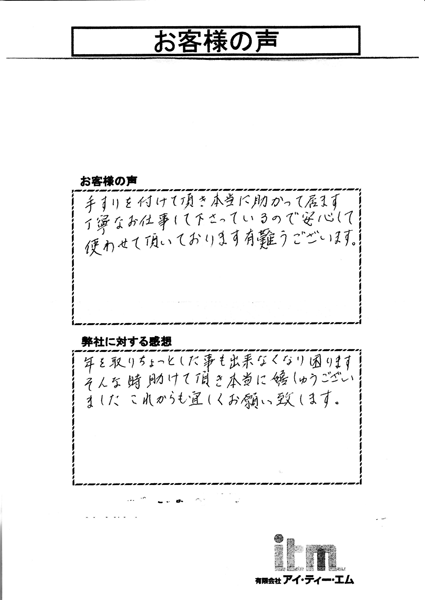 お客様の声
お客様の声
手すりを付けて頂き本当に助かって居ます
丁寧なお仕事して下さっているので安心して
使わせて頂いております有難うございます。
弊社に対する感想
年を取りちょっとした事も出来なくなり困ります
そんな時助けて頂き本当に嬉しゅうござい
ました これからも宜しくお願い致します。
itm
有限会社 アイ・ティー・エム